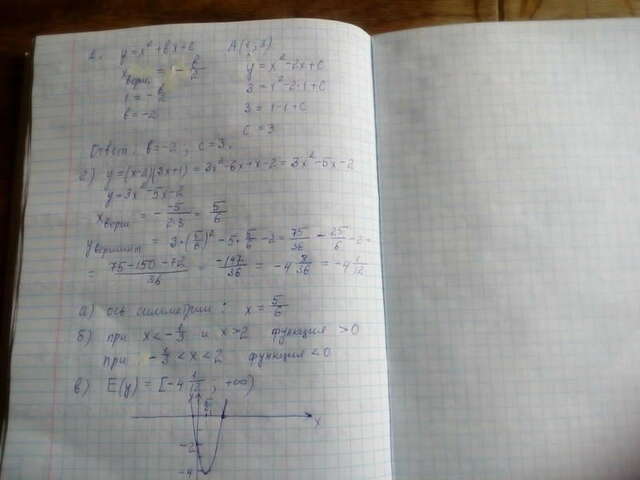 в. y=x²+bx+c A(1;3)
x верш. = 1 = -b/2 y=x²-2x+c
1=-b/2 3=1²-2·1+c
b=-2 3=1-1+c
c=3
Ответ: b=-2; c=3.
2) y=(x-2)(3x+1)=3x²-6x+x-2=3x²-5x-2
y=3x²-5x-2
x верш = - -5/2·3 = 5/6
y вершины = 3·(5/6)²-5·5/6-2=75/36-25/6-2=
= 75-150-72/36 = -147/36 = -4 3/36 = -4 1/12
а) ось симметрии: x=5/6
б) при x<-1/3 и x>2 функция >0
при -1/3<x<2 функция <0
в) E(y)=[-4 1/12; +∞)
y 5/6
x
-2
-4